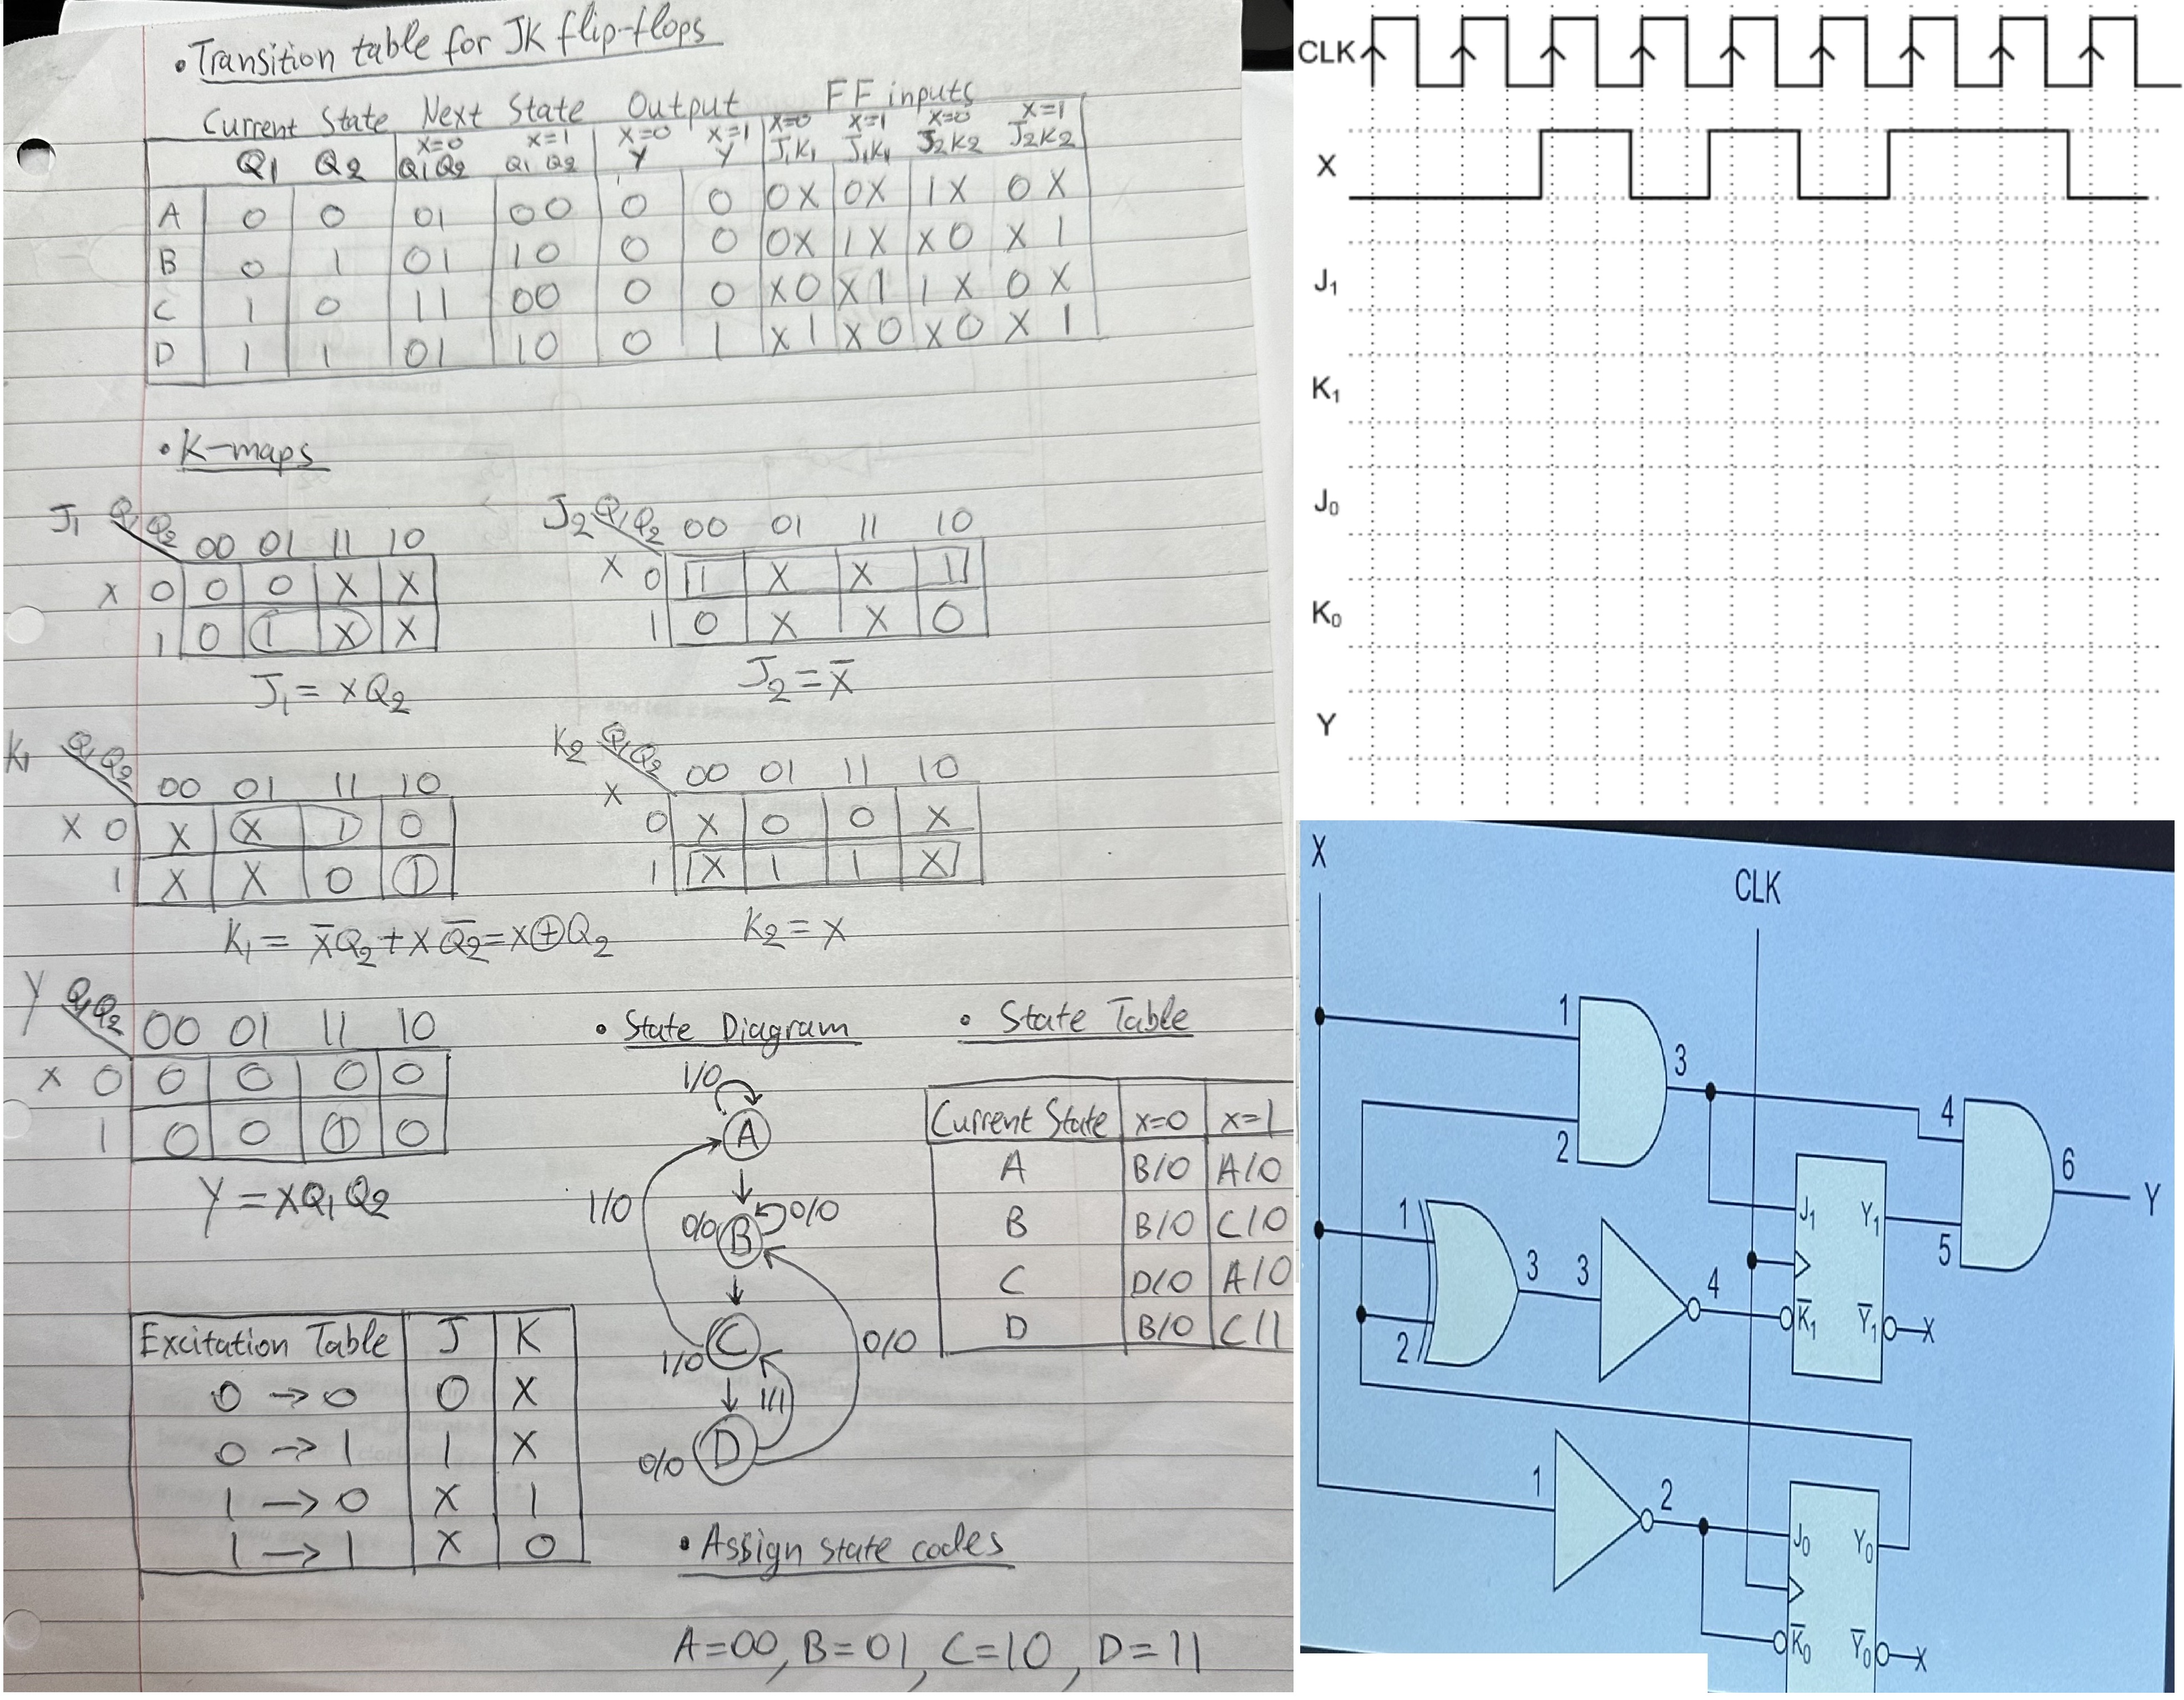 • Transition table for JK flip-flops
Current State Next State Output FF inputs
x=0 x=1 x=0 x=1 x=0 x=1 x=0 x=1
Q1 Q2 Q1 Q2 Q1 Q2 Y Y J1K1 J1K1 J2K2 J2K2
A 0 0 01 00 0 0 0X 0X 1X 0X
B 0 1 01 10 0 0 0X 1X X0 X1
C 1 0 11 00 0 0 X0 X1 1X 0X
D 1 1 01 10 0 1 X1 X0 X0 X1
• K-maps
J1 Q1Q2 00 01 11 10
x 0 0 0 X X
1 0 1 X X
J1 = xQ2
J2 Q1Q2 00 01 11 10
x 0 1 X X 1
1 0 X X 0
J2 = x̅
K1 Q1Q2 00 01 11 10
x 0 X X 1 0
1 X X 0 1
K1 = x̅Q2 + xQ̅2 = x⊕Q2
K2 Q1Q2 00 01 11 10
x 0 X 0 0 X
1 X 1 1 X
K2 = x
Y Q1Q2 00 01 11 10
x 0 0 0 0 0
1 0 0 1 0
Y = xQ1Q2
• State Diagram
1/0
A
1/0
0/0 B 0/0
1/0 C 0/0
1/1
0/0 D
• State Table
Current State x=0 x=1
A B/0 A/0
B B/0 C/0
C D/0 A/0
D B/0 C/1
Excitation Table J K
0 → 0 0 X
0 → 1 1 X
1 → 0 X 1
1 → 1 X 0
• Assign state codes
A=00, B=01, C=10, D=11
CLK
X
J1
K1
J0
K0
Y
X
CLK
1
3
2
4
6
Y
5
1
3 3
4
2
J1 Y1
K̅1 Y̅1 X
1
2
J0 Y0
K̅0 Y̅0 X